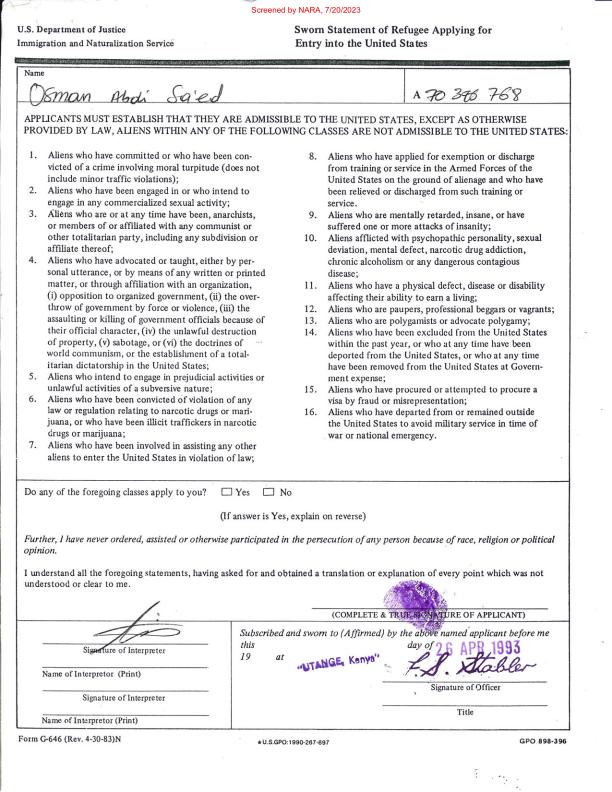 Screened by NARA, 7/20/2023
U.S. Department of Justice
Immigration and Naturalization Service
Sworn Statement of Refugee Applying for
Entry into the United States
Name
Osman Abdi Sa'ed
A 70 396 768
APPLICANTS MUST ESTABLISH THAT THEY ARE ADMISSIBLE TO THE UNITED STATES, EXCEPT AS OTHERWISE
PROVIDED BY LAW, ALIENS WITHIN ANY OF THE FOLLOWING CLASSES ARE NOT ADMISSIBLE TO THE UNITED STATES:
1. Aliens who have committed or who have been con-
victed of a crime involving moral turpitude (does not
include minor traffic violations);
2. Aliens who have been engaged in or who intend to
engage in any commercialized sexual activity;
3. Aliens who are or at any time have been, anarchists,
or members of or affiliated with any communist or
other totalitarian party, including any subdivision or
affiliate thereof;
4. Aliens who have advocated or taught, either by per-
sonal utterance, or by means of any written or printed
matter, or through affiliation with an organization,
(i) opposition to organized government, (ii) the over-
throw of government by force or violence, (iii) the
assaulting or killing of government officials because of
their official character, (iv) the unlawful destruction
of property, (v) sabotage, or (vi) the doctrines of
world communism, or the establishment of a total-
itarian dictatorship in the United States;
5. Aliens who intend to engage in prejudicial activities or
unlawful activities of a subversive nature;
6. Aliens who have been convicted of violation of any
law or regulation relating to narcotic drugs or mari-
juana, or who have been illicit traffickers in narcotic
drugs or marijuana;
7. Aliens who have been involved in assisting any other
aliens to enter the United States in violation of law;
8. Aliens who have applied for exemption or discharge
from training or service in the Armed Forces of the
United States on the ground of alienage and who have
been relieved or discharged from such training or
service.
9. Aliens who are mentally retarded, insane, or have
suffered one or more attacks of insanity;
10. Aliens afflicted with psychopathic personality, sexual
deviation, mental defect, narcotic drug addiction,
chronic alcoholism or any dangerous contagious
disease;
11. Aliens who have a physical defect, disease or disability
affecting their ability to earn a living;
12. Aliens who are paupers, professional beggars or vagrants;
13. Aliens who are polygamists or advocate polygamy;
14. Aliens who have been excluded from the United States
within the past year, or who at any time have been
deported from the United States, or who at any time
have been removed from the United States at Govern-
ment expense;
15. Aliens who have procured or attempted to procure a
visa by fraud or misrepresentation;
16. Aliens who have departed from or remained outside
the United States to avoid military service in time of
war or national emergency.
Do any of the foregoing classes apply to you? Yes No
(If answer is Yes, explain on reverse)
Further, I have never ordered, assisted or otherwise participated in the persecution of any person because of race, religion or political
opinion.
I understand all the foregoing statements, having asked for and obtained a translation or explanation of every point which was not
understood or clear to me.
(COMPLETE & TRUE SIGNATURE OF APPLICANT)
Signature of Interpreter
Name of Interpretor (Print)
Signature of Interpreter
Name of Interpretor (Print)
Subscribed and sworn to (Affirmed) by the above named applicant before me
this day of 26 APR 1993
19 at "UTANGE, Kenya"
L.S. Stabler
Signature of Officer
Title
Form G-646 (Rev. 4-30-83)N
★U.S.GPO:1990-267-697
GPO 898-396